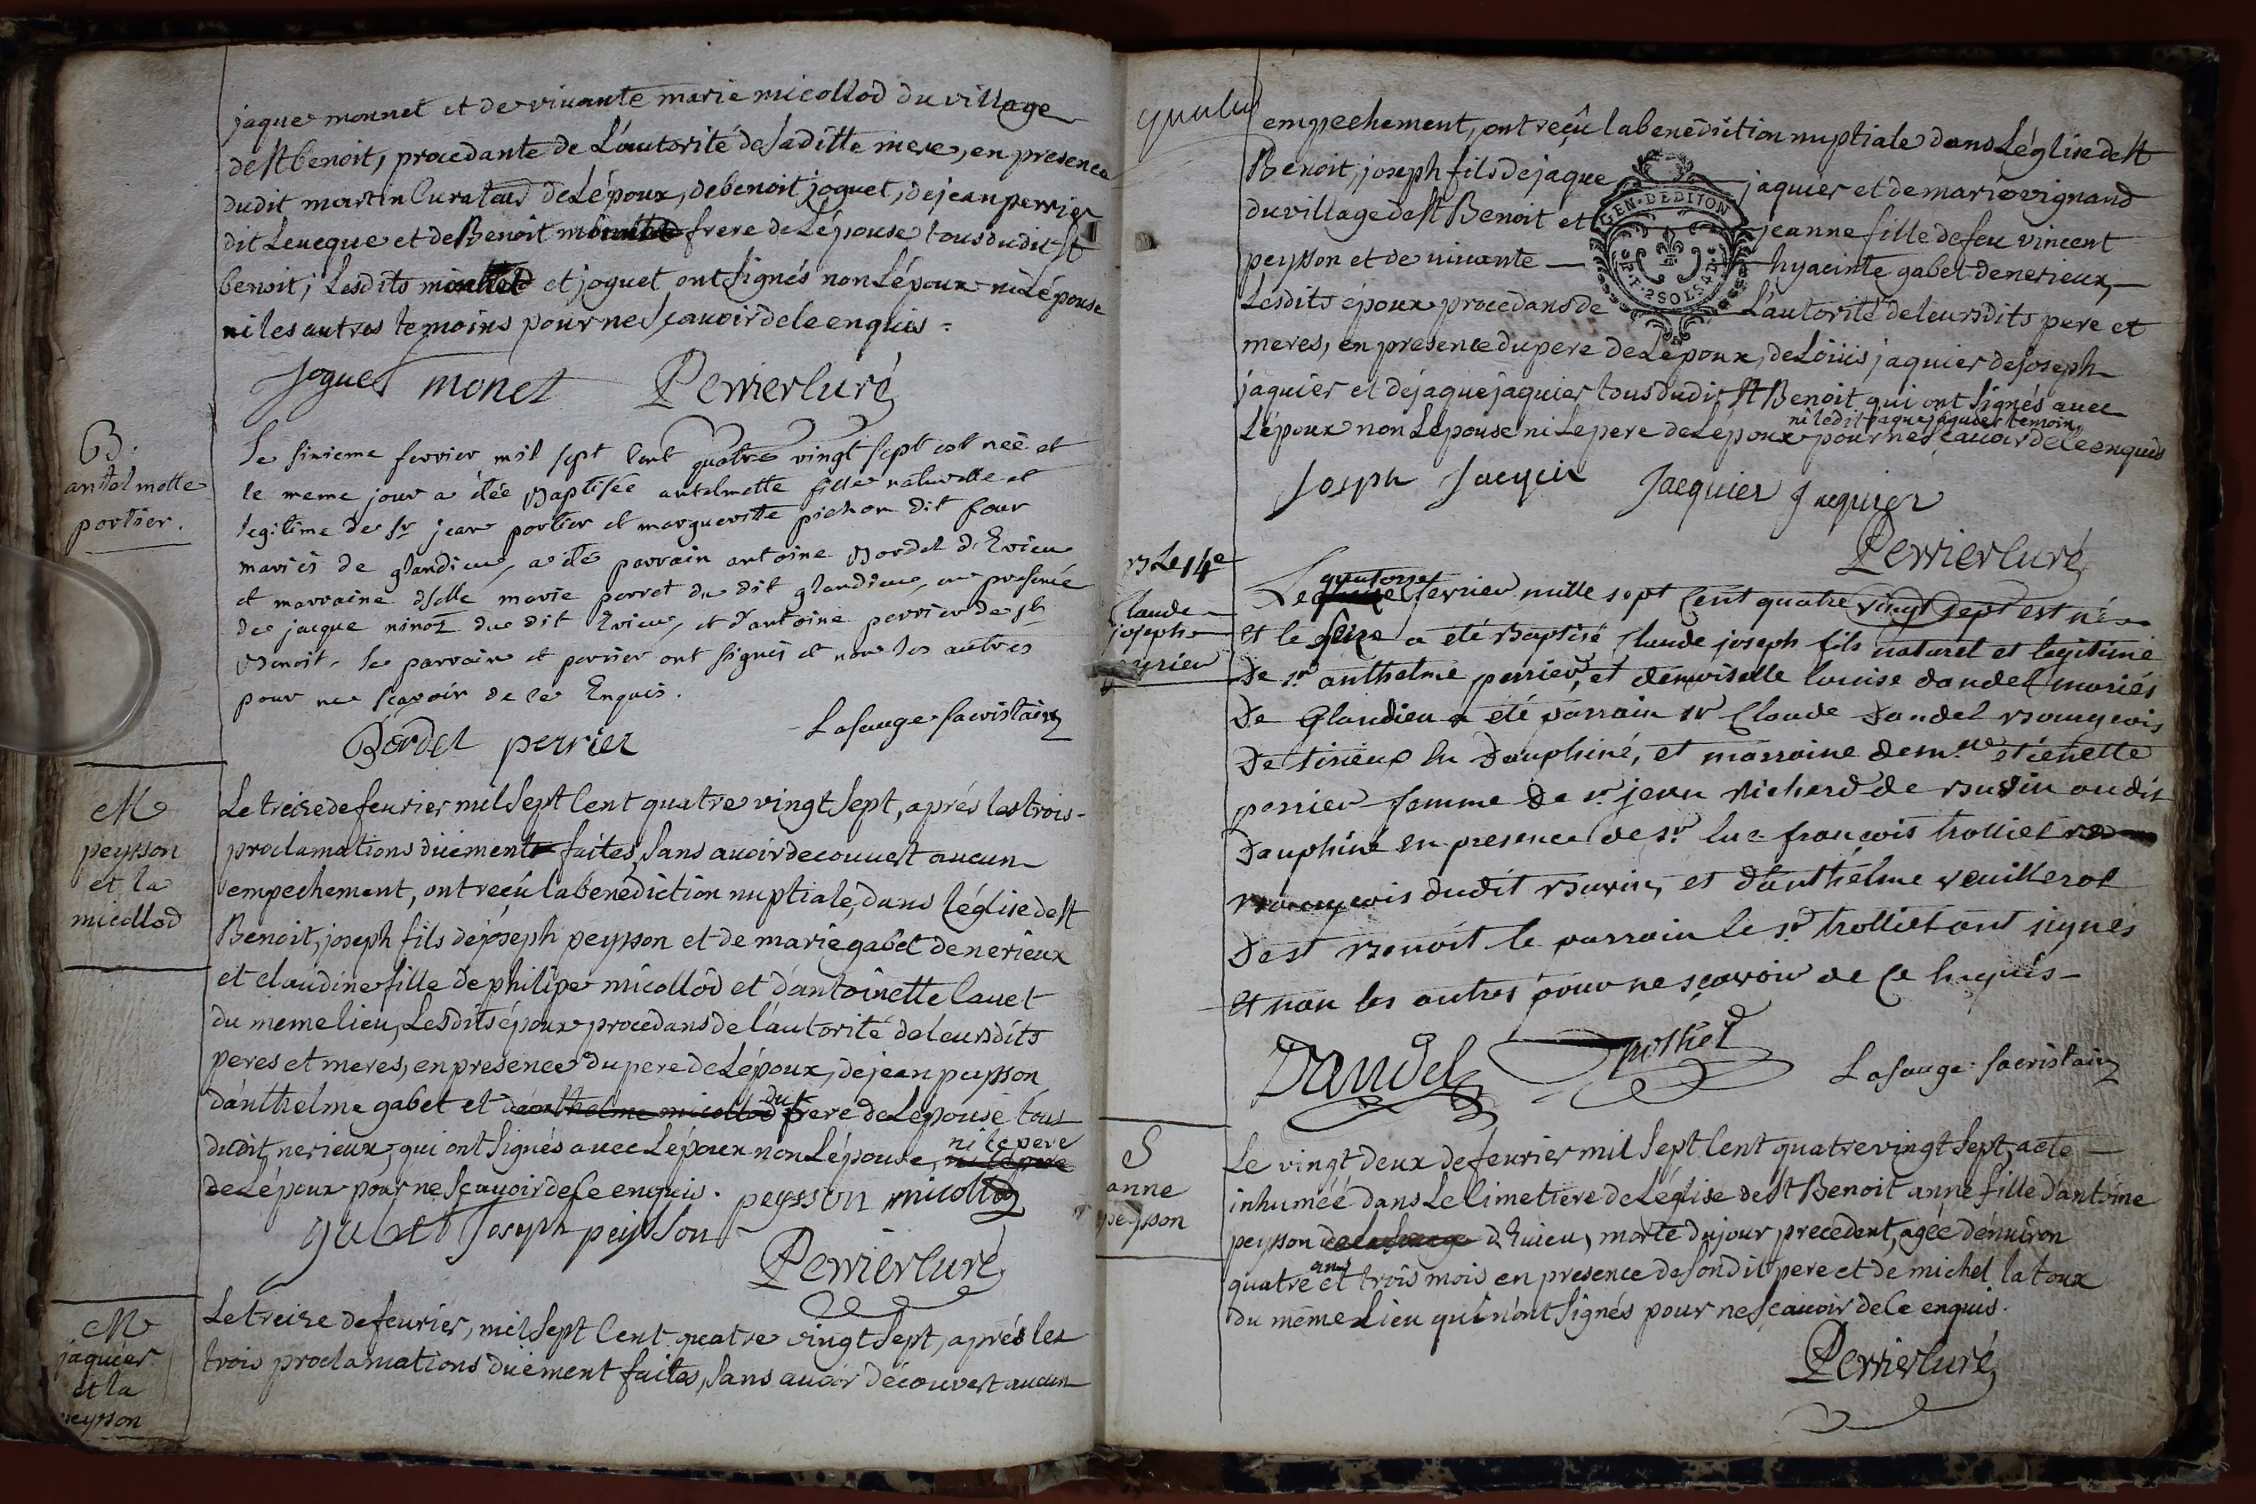 jaque monnet et de vivante marie micollod du village
de st benoit, procedante de L'autorité de sa ditte mere, en presence
dudit martin Curateur de L'époux, de benoit joguet, de jean perrier
dit Leveque et de Benoit frere de L'épouse tous dudit st
benoit; Lesdits et joguet ont signés non L'époux ni L'épouse
ni les autres temoins pour ne sçavoir de le enquis =
joguet monet Perrier Curé
B.
antelmette
portier.
Le sixieme fevrier mil sept cent quatre vingt sept est neé et
le meme jour a étée Baptisée antelmette fille naturelle et
legitime de sr jean portier et margueritte pichon dit four
mariés de glandieu, a été parrain antoine Bordel d'Evieu
et marraine dselle marie perret du dit glandieu, en presence
de jacque ninoz du dit Evieu, et d'antoine perrier de st
Benoit, le parrain et perrier ont signés et non les autres
pour ne sçavoir de ce Enquis.
Bordel perrier Lafauge sacristain
M
peysson
et la
micollod
Le treize de fevrier mil sept Cent quatre vingt sept, aprés les trois
proclamations düement faites, sans avoir decouvert aucun
empechement, ont reçû la benédiction nuptiale, dans l'église de st
Benoit, joseph fils de joseph peysson et de marie gabet de nerieux
et claudine fille de philipe micollod et d'antoinette Cauet
du meme lieu, Lesdits époux procedans de l'autorité de leursdits
peres et meres, en presence du pere de L'époux, de jean peysson
d'anthelme gabet et d'anthelme micollod du frere de L'épouse tous
dudit nerieux, qui ont signés avec L'époux non L'épouse, ni le pere
de L'époux pour ne sçavoir de Ce enquis. peysson micollod
gabet joseph peysson
Perrier Curé
M
jaquier
et la
peysson
Le treize de fevrier, mil sept Cent quatre vingt sept, aprés les
trois proclamations düement faites, sans avoir découvert aucun
empechement, ont reçû la benédiction nuptiale dans L'église de st
Benoit, joseph fils de jaque jaquier et de marie vignand
du village de st Benoit et jeanne fille de feu vincent
peysson et de vivante hyacinte gabet de nerieux,
GEN. DE DIJON
Lesdits époux procedans de L'autorité de leursdits pere et
meres, en presence du pere de L'époux, de Loüis jaquier de joseph
jaquier et de jaque jaquier tous dudit st Benoit qui ont signés avec
ni ledit jaque jaquier temoin
L'époux non L'épouse ni Le pere de L'époux pour ne sçavoir de Ce enquis
Joseph Jacquier Jacquier
Perrier Curé
B Le 14e
Claude
joseph
perrier
Le quatorze fevrier mille sept Cent quatre vingt sept est né
et le seize a eté Baptisé Claude joseph fils naturel et legitime
De sr anthelme perrier, et demoiselle louise dandel mariés
De Glandieu a été parrain sr Claude Dandel Bourgeois
De sirieux en Dauphiné, et marraine demlle etienette
perrier femme de sr jean Richerd de Buvin audit
Dauphiné en presence de sr luc françois trolliet
Bourgeois dudit Buvin, et d'anthelme veuillerot
De st Benoit le parrain le sr trolliet ont signés
et non les autres pour ne sçavoir de Ce Enquis
Dandel Lafauge sacristain
S
anne
peysson
Le vingt deux de fevrier mil sept Cent quatre vingt sept, a eté
inhumée dans Le Cimetiere de L'église de st Benoit anne fille d'antoine
peysson d'Evieu, morte du jour precedent, agée d'environ
quatre ans et trois mois en presence de son dit pere et de michel latour
du même Lieu qui n'ont signés pour ne sçavoir de Ce enquis.
Perrier Curé